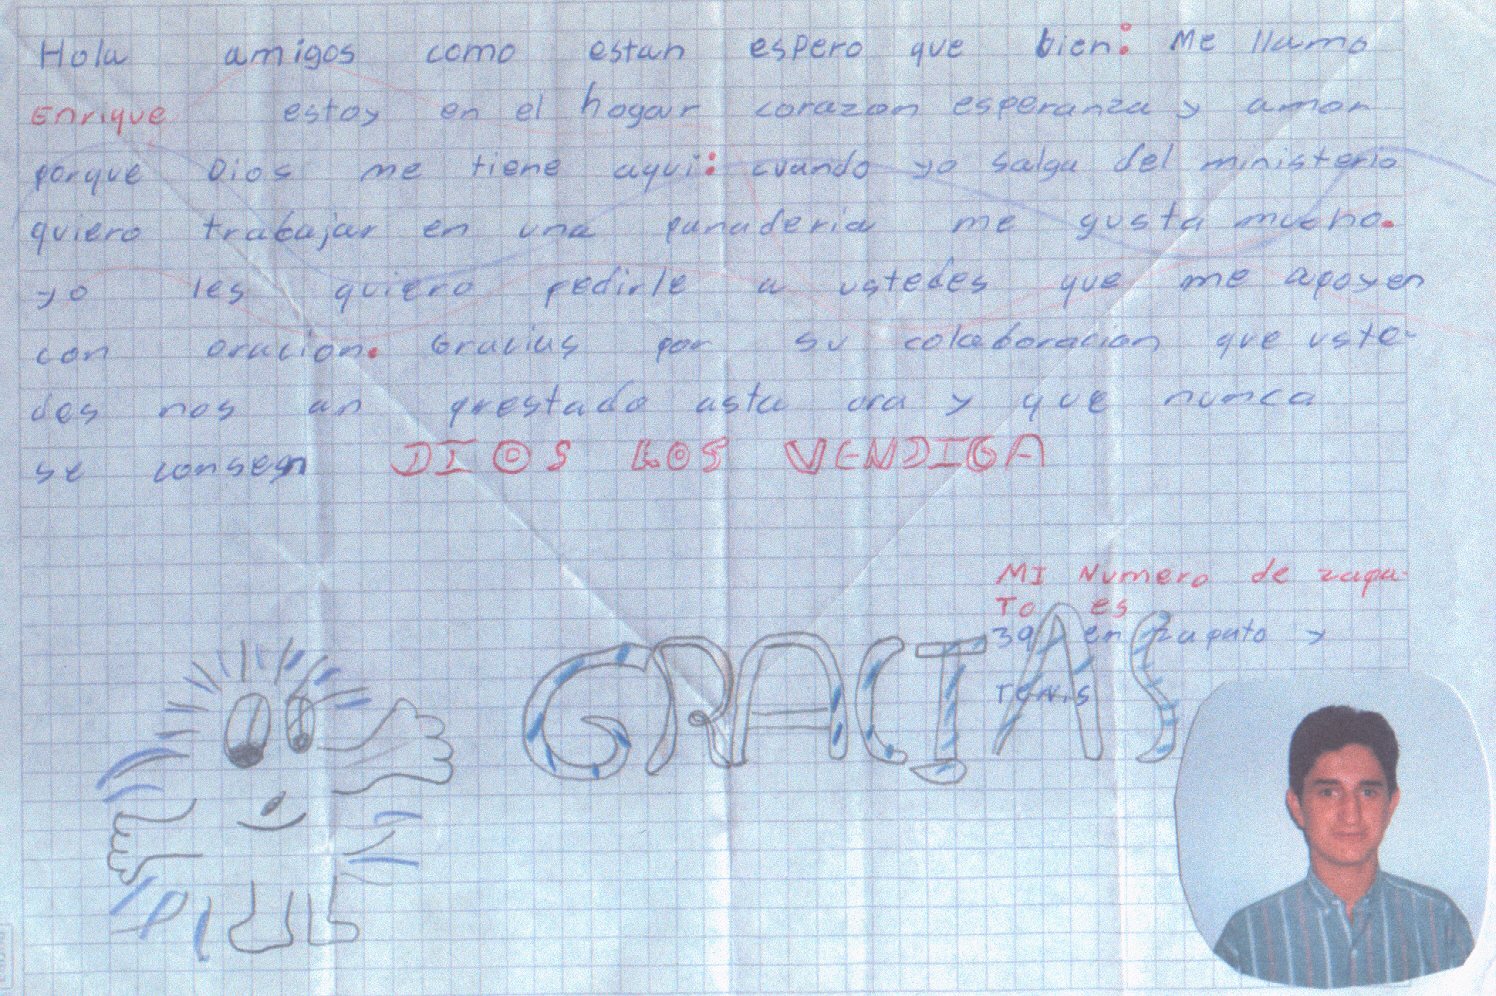 Hola amigos como estan espero que bien: Me llamo
Enrique estoy en el hogar corazon esperanza y amor
porque Dios me tiene aqui: cuando yo salga del ministerio
quiero trabajar en una panaderia me gusta mucho.
yo les quiero pedirle a ustedes que me apoyen
con oracion. Gracias por su colaboracion que uste-
des nos an prestado asta ora y que nunca
se consegn DIOS LOS VENDIGA
MI Numero de zapa-
To es
39 en zapato y
Tenis
GRACIAS